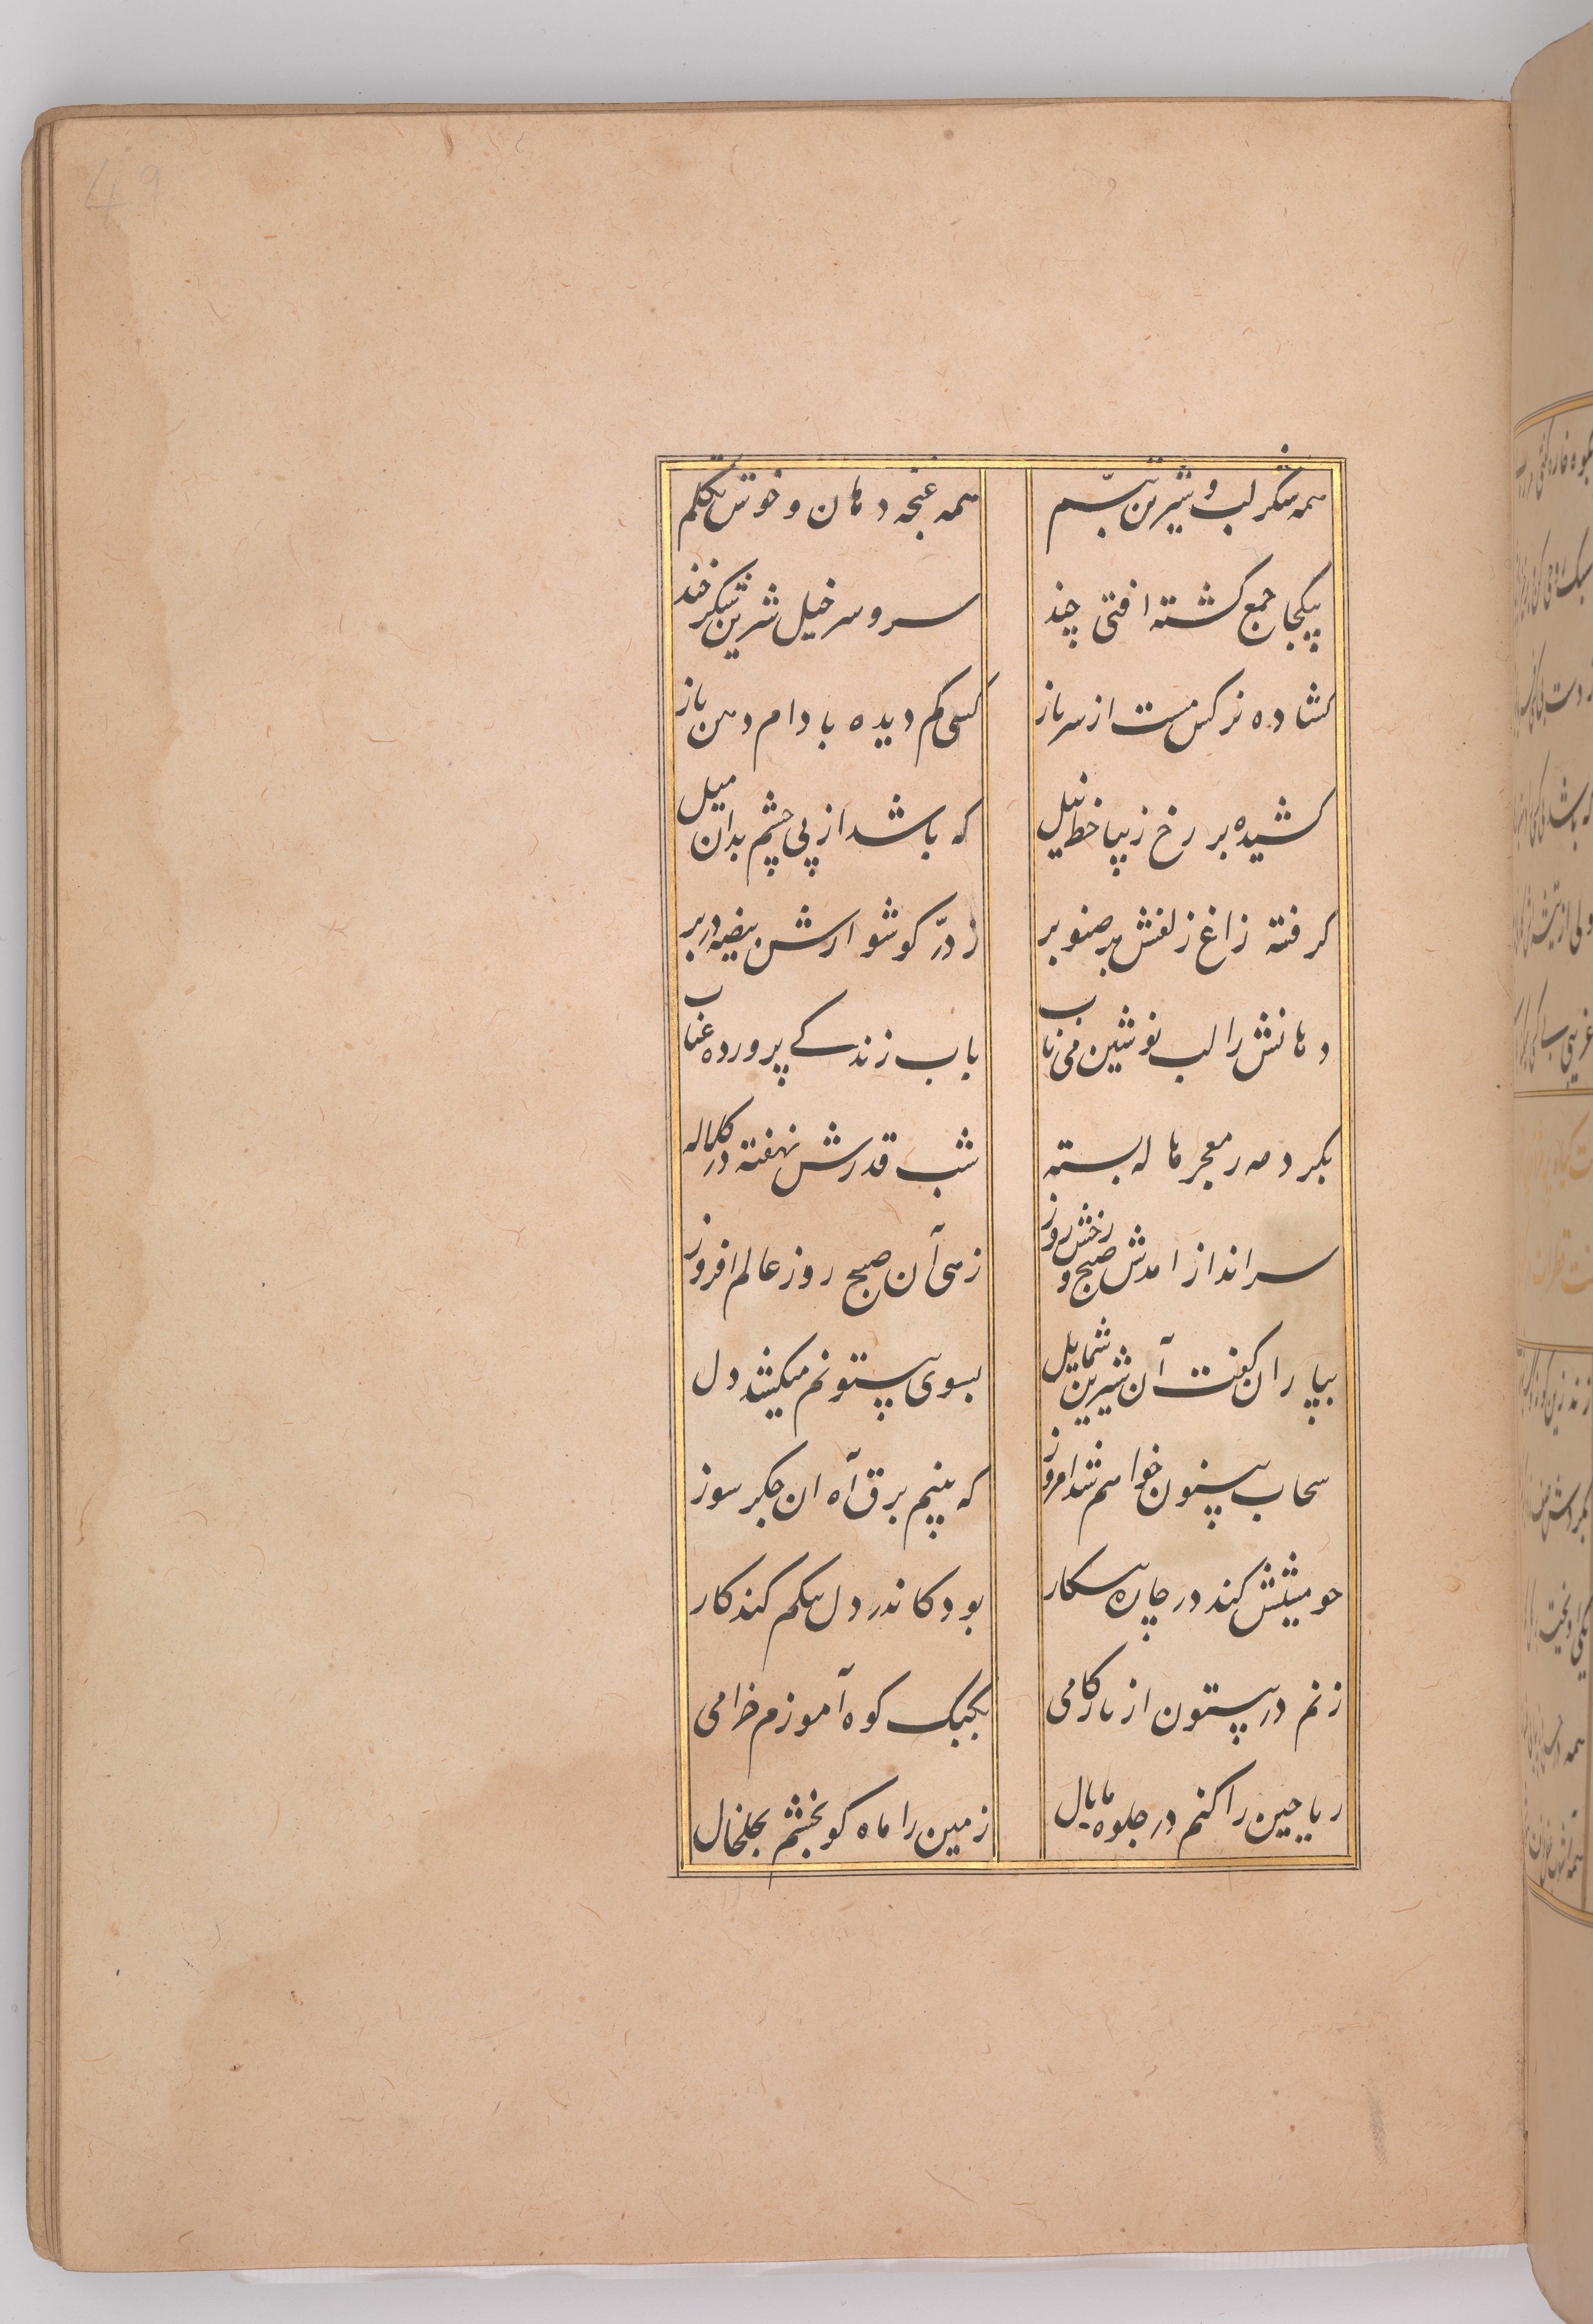 49
همه شکر لب و شیرین تبسّم همه غنچه دهان و خوش تکلم
بیکجا جمع کشته افتی چند سر و سر خیل شیرین شکر خند
کشاده نرکس مست از سر ناز کسی کم دیده بادام دهن باز
کشیده بر رخ زیبا خط نیل که باشد از پی چشم بدان میل
کرفته زاغ زلفش بر صنوبر ز درّ کوشوارش بیضه در بر
دهانش را لب نوشین می ناب باب زندکے پرورده عناب
بکرد مه ز معجر هاله بسته شب قدرش نهفته در کلاله
سرانداز امدش صبح و رخش روز زهی آن صبح روز عالم افروز
بیاران کفت آن شیرین شمایل بسوی بیستونم میکشد دل
سحاب بیستون خواهم شد امروز که بینم برق آه ان جکر سوز
چو میتینش کند در چاره سکار بود کاندر دل سنکم کند کار
زنم در بیستون از ناز کامی بکبک کوه آموزم خرامی
ریاحین را کنم در جلوه پامال زمین را ماه نو بخشم بخلخال